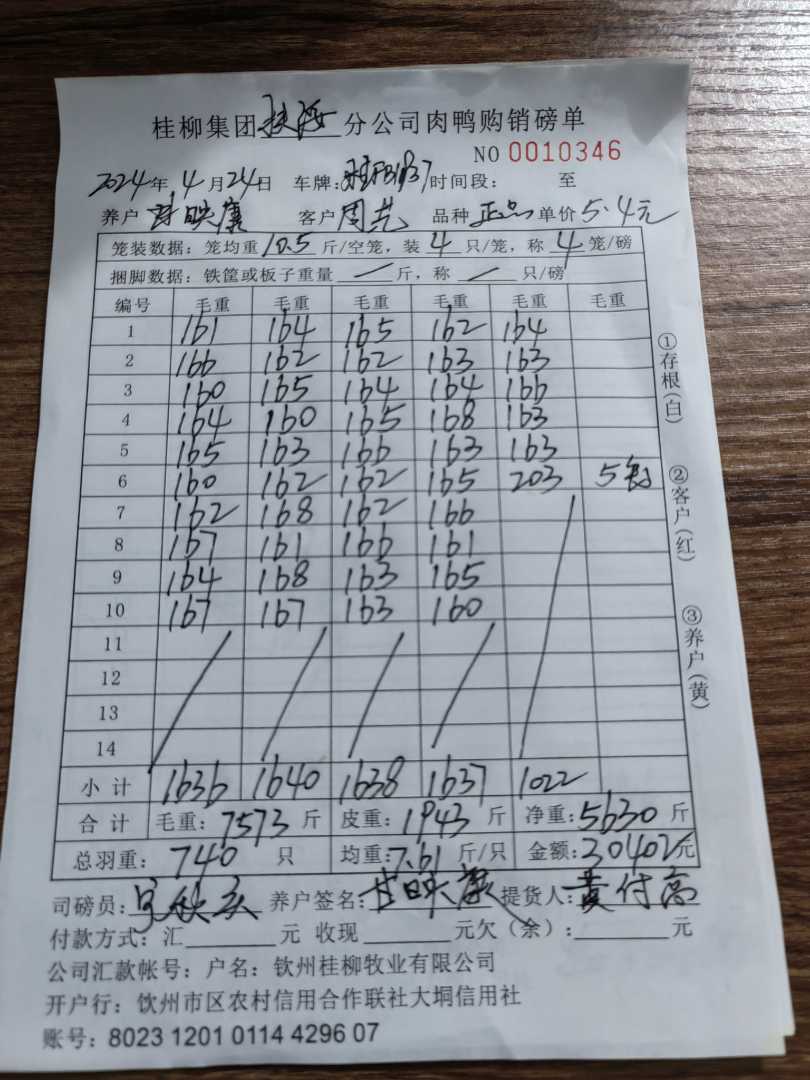 桂柳集团 分公司肉鸭购销磅单
NO 0010346
2024年 4月 24日 车牌: 时间段: 至
养户 甘映康 客户 周 品种 正品 单价 5.4元
笼装数据: 笼均重 10.5 斤/空笼, 装 4 只/笼, 称 4 笼/磅
捆脚数据: 铁筐或板子重量 / 斤, 称 / 只/磅
编号 毛重 毛重 毛重 毛重 毛重 毛重
1 161 164 165 162 164
2 166 162 162 163 163
3 160 165 164 164 166
4 164 160 165 168 163
5 165 163 166 163 163
6 160 162 162 165 203 5
7 162 168 162 166
8 167 161 166 161
9 164 168 163 165
10 167 167 163 160
11
12
13
14
小计 1636 1640 1638 1637 1022
合计 毛重: 7573 斤 皮重: 1943 斤 净重: 5630 斤
总羽重: 740 只 均重: 7.61 斤/只 金额: 30402元
司磅员: 养户签名: 甘映康 提货人: 黄付高
付款方式: 汇 元 收现 元欠(余): 元
公司汇款帐号: 户名: 钦州桂柳牧业有限公司
开户行: 钦州市区农村信用合作联社大垌信用社
账号: 8023 1201 0114 4296 07
①存根(白)
②客户(红)
③养户(黄)